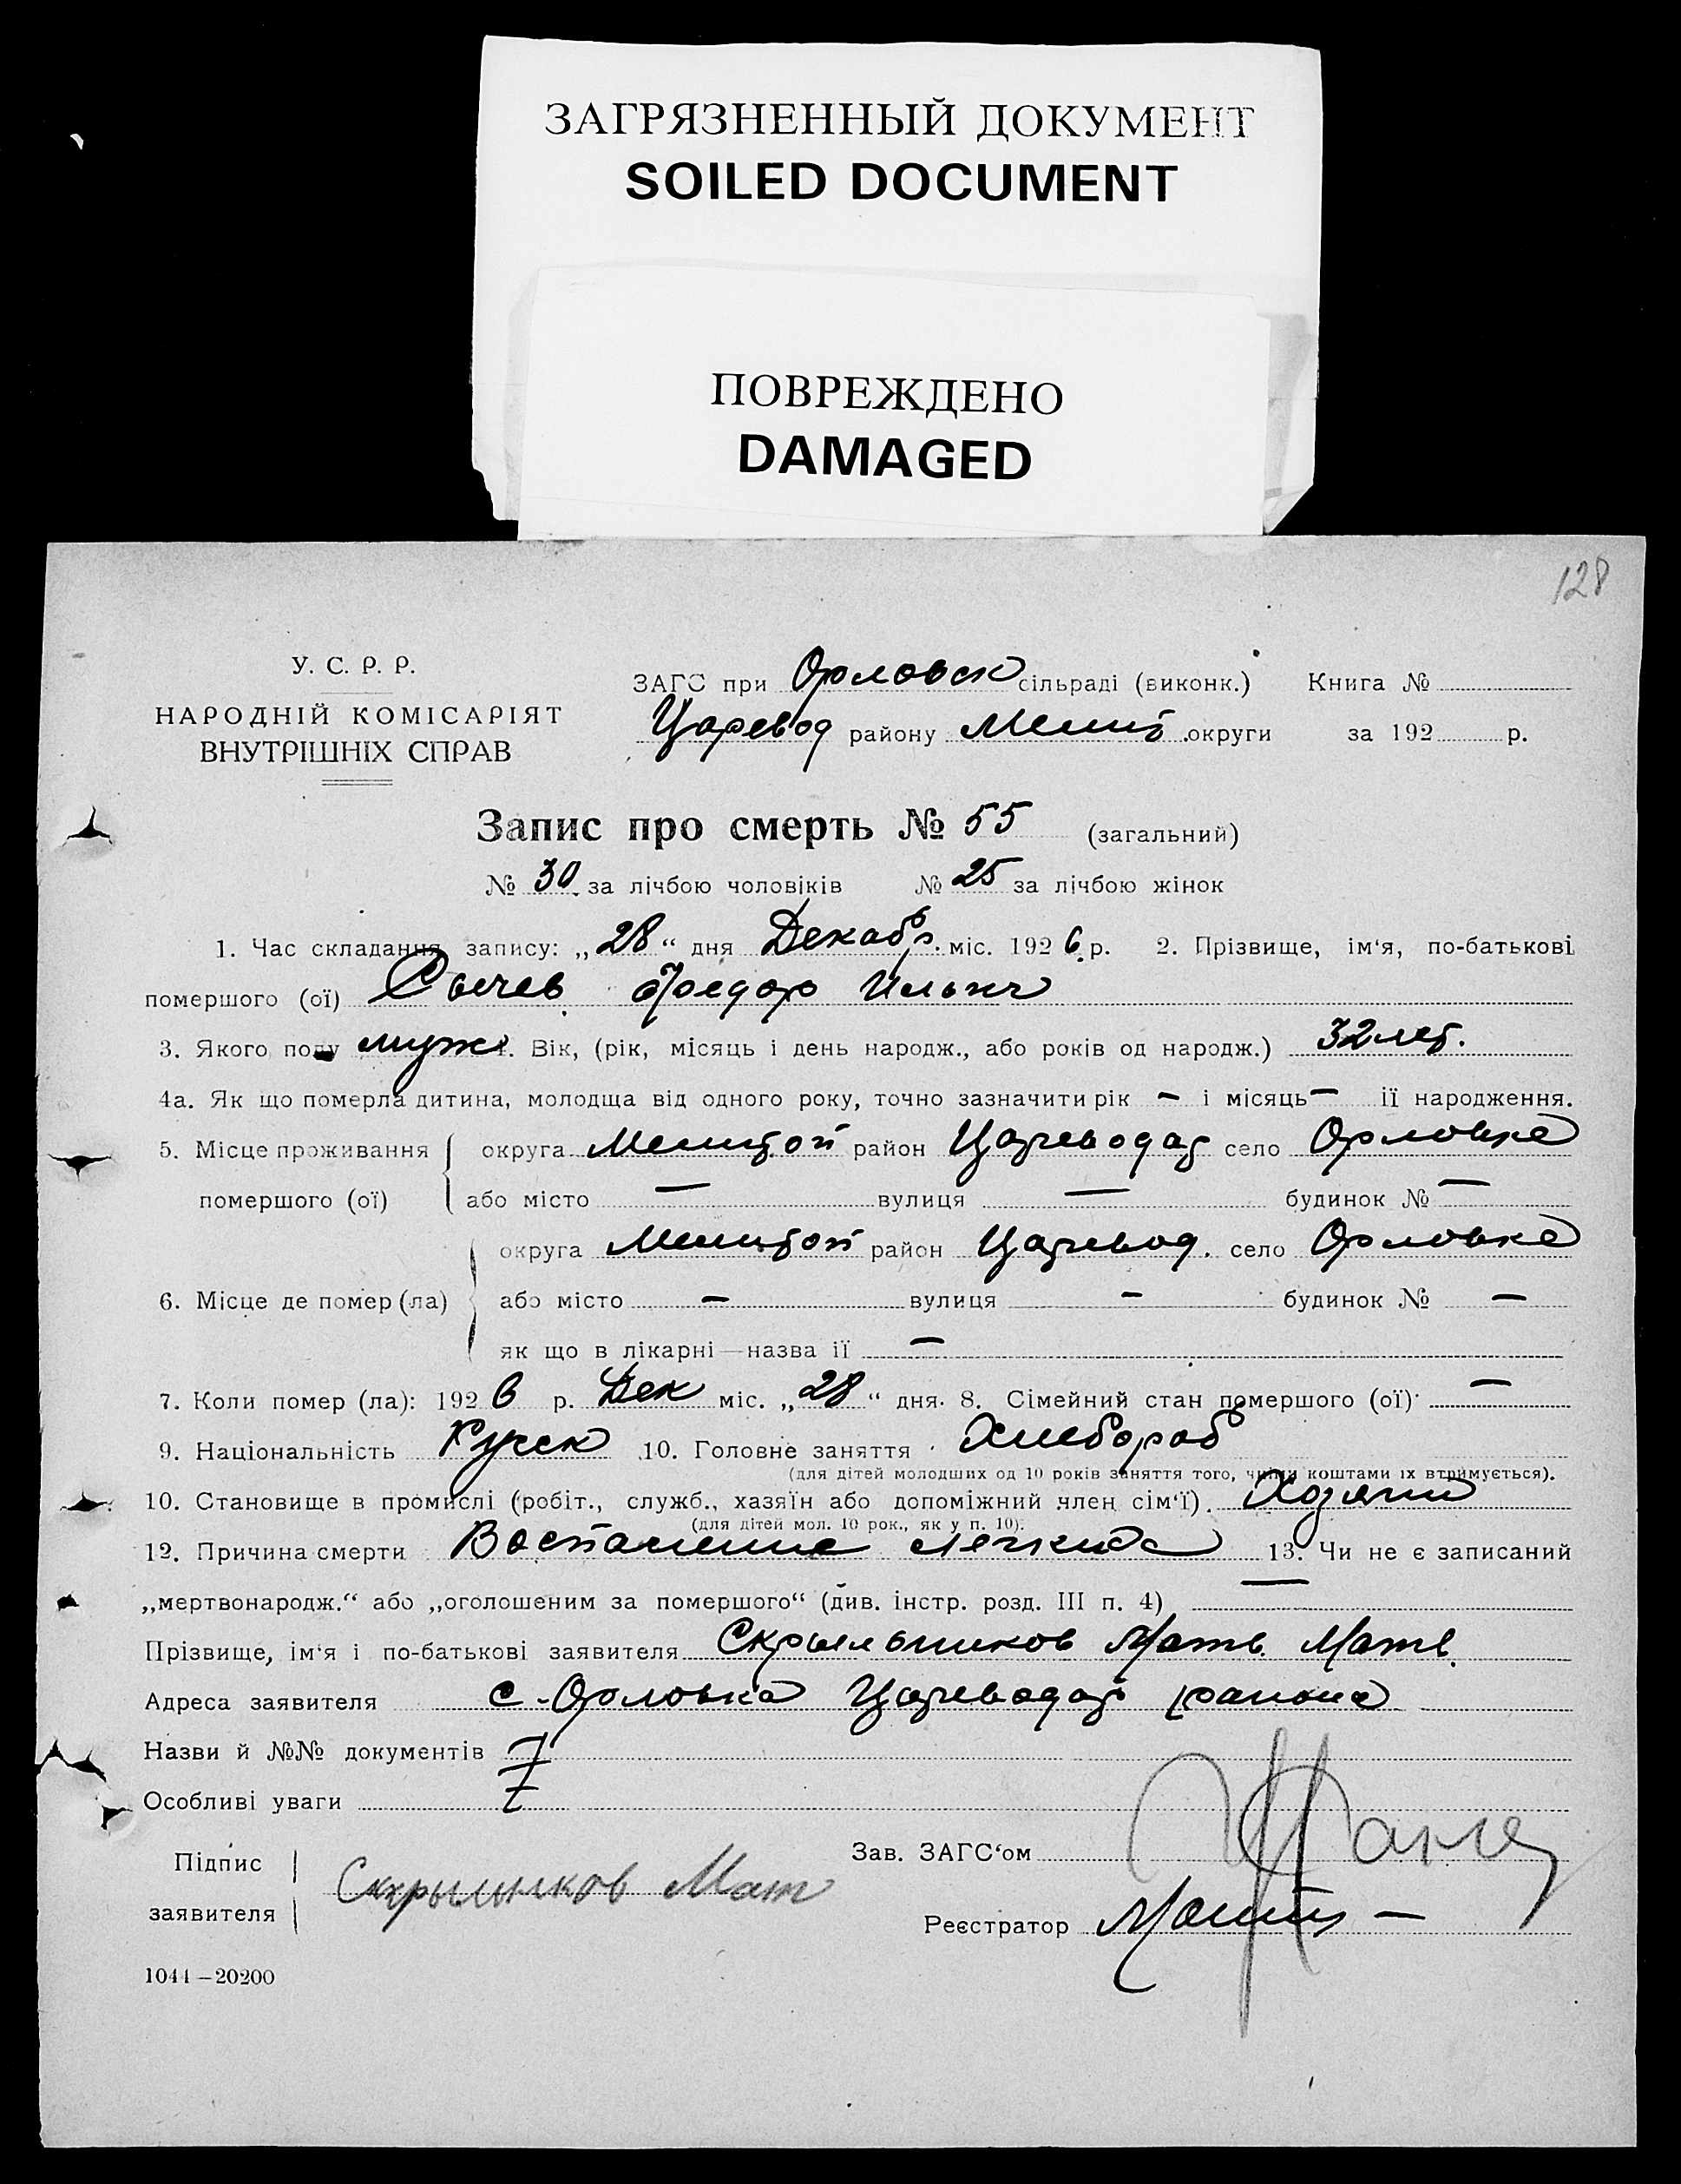 ЗАГРЯЗНЕННЫЙ ДОКУМЕНТ
SOILED DOCUMENT
ПОВРЕЖДЕНО
DAMAGED
128
У. С. Р. Р.
НАРОДНІЙ КОМІСАРІЯТ
ВНУТРІШНІХ СПРАВ
ЗАГС при Орловск сільраді (виконк.) Книга №
Царевод району Мелит округи за 192 р.
Запис про смерть № 55 (загальний)
№ 30 за лічбою чоловіків № 25 за лічбою жінок
1. Час складання запису: „28“ дня Декабр. міс. 1926 р. 2. Прізвище, ім‘я, по-батькові
помершого (ої) Сычев Федор Ильич
3. Якого полу муж 4. Вік, (рік, місяць і день народж., або років од народж.) 32 лет.
4а. Як що померла дитина, молодща від одного року, точно зазначити рік — і місяць — її народження.
5. Місце проживання округа Мелитоп район Цареводар село Орловка
помершого (ої) або місто — вулиця — будинок № —
округа Мелитоп район Царевод. село Орловка
6. Місце де помер (ла) або місто — вулиця — будинок № —
як що в лікарні — назва її —
7. Коли помер (ла): 1926 р. Дек міс. „28“ дня. 8. Сімейний стан помершого (ої) —
9. Національність Русск 10. Головне заняття Хлебороб
(для дітей молодших од 10 років заняття того, чиїми коштами їх втримується).
10. Становище в промислі (робіт., служб., хазяїн або допоміжний член сім‘ї). Хозяин
(для дітей мол. 10 рок., як у п. 10).
12. Причина смерти Воспаление легких 13. Чи не є записаний
„мертвонародж.“ або „оголошеним за помершого“ (див. інстр. розд. III п. 4) —
Прізвище, ім‘я і по-батькові заявителя Скрыльников Матв. Матв.
Адреса заявителя с. Орловка Цареводар района
Назви й №№ документів
Особливі уваги
Підпис
заявителя
Скрыльников Мат
Зав. ЗАГС‘ом
Реєстратор
1044—20200